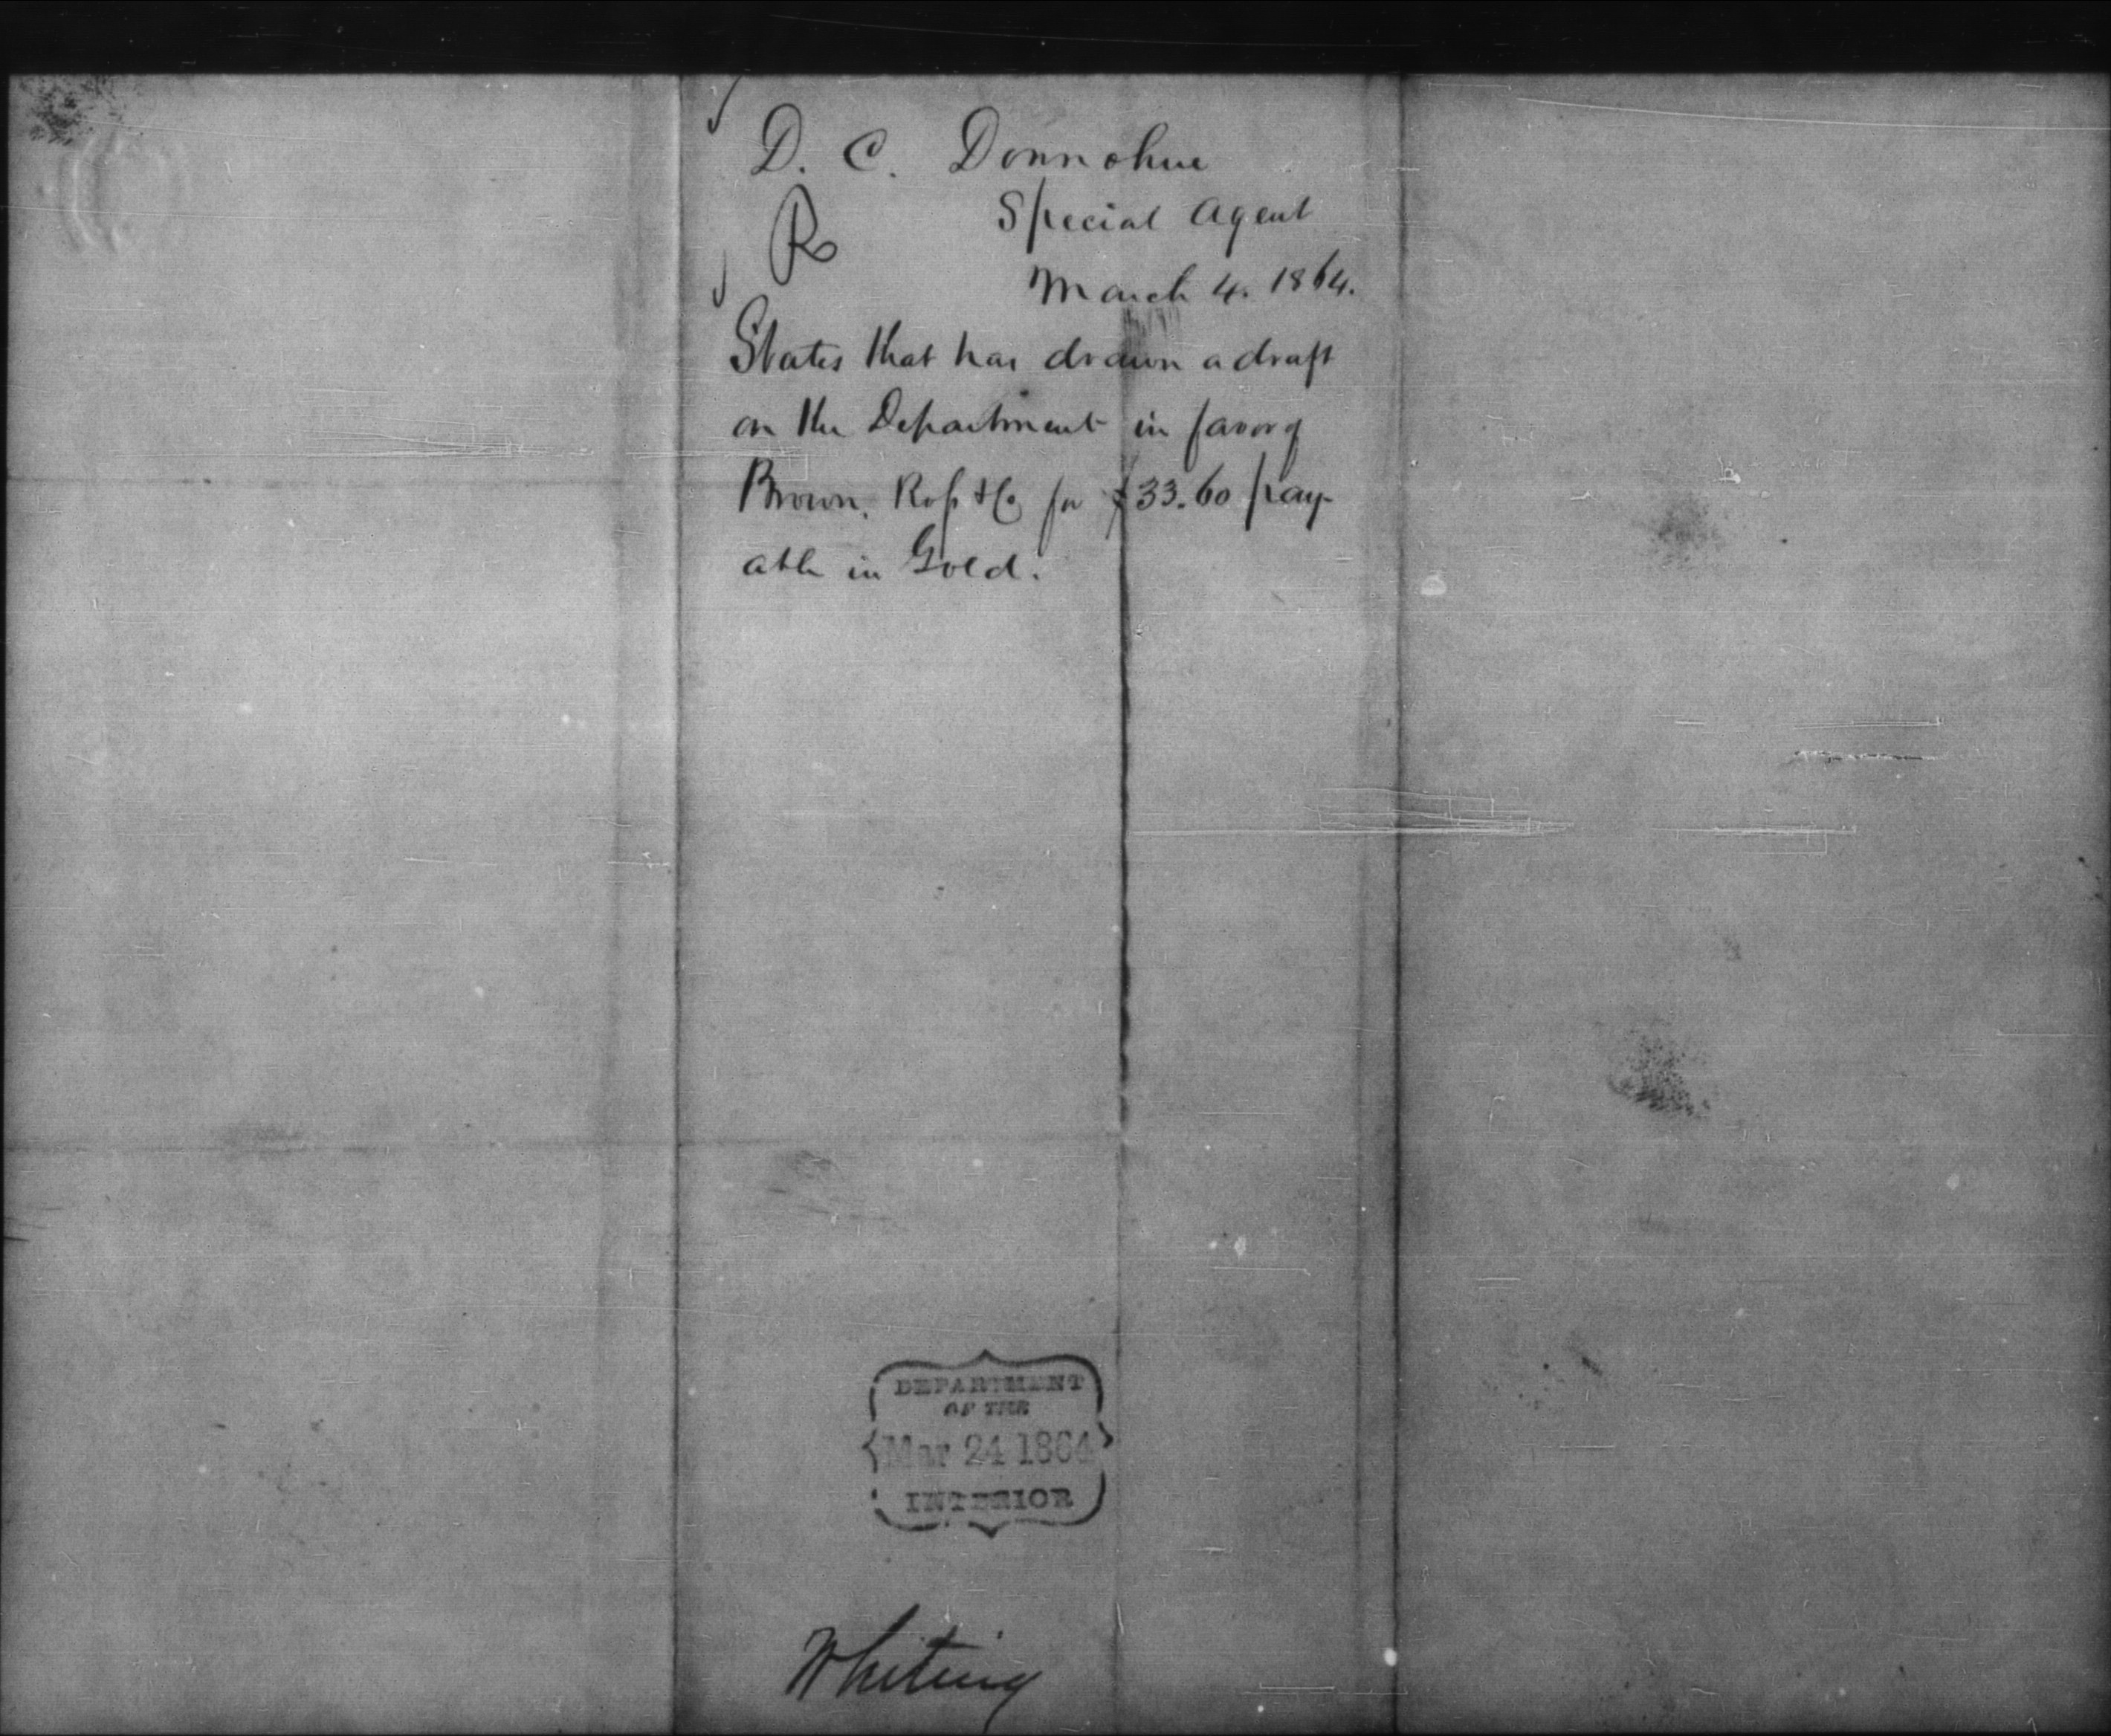 D. C. Donnohue
Special Agent
R
March 4. 1864.
States that has drawn a draft
on the Department in favor of
Brown, Ross & Co for $33.60 pay-
able in Gold.
DEPARTMENT
OF THE
Mar 24 1864
INTERIOR
Whiting